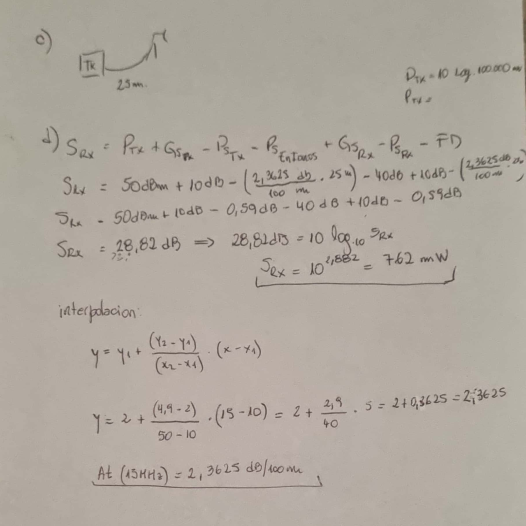 c)
Tx
25m.
PTx = 10 log 100.000 mw
PTx =
d) SRx = PTx + GSTx - PSTx - PSEntonos + GSRx - PSRx - FD
SRx = 50dBm + 10dB - (2,3625 db / 100 m · 25m) - 40dB + 10dB - (2,3625dB / 100m · 25m)
SRx = 50dBm + 10dB - 0,59dB - 40dB + 10dB - 0,59dB
SRx = 28,82 dB ⟹ 28,82dB = 10 log10 SRx
SRx = 10^2,882 = 762 mW
interpolacion:
y = y1 + (y2 - y1) / (x2 - x1) · (x - x1)
y = 2 + (4,9 - 2) / (50 - 10) · (15 - 10) = 2 + 2,9 / 40 · 5 = 2 + 0,3625 = 2,3625
At (15MHz) = 2,3625 dB/100m